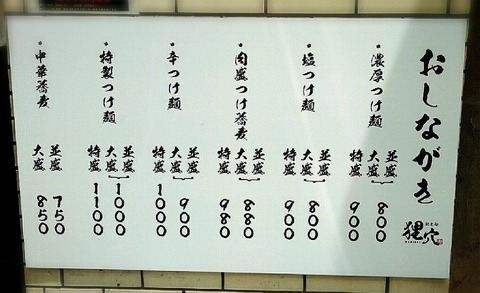 おしながき
狸穴
・濃厚つけ麺
並盛
大盛
800
特盛
900
・塩つけ麺
並盛
大盛
800
特盛
900
・肉盛つけ蕎麦
並盛
大盛
880
特盛
980
・辛つけ麺
並盛
大盛
900
特盛
1000
・特製つけ麺
並盛
大盛
1000
特盛
1100
・中華蕎麦
並盛
750
大盛
850